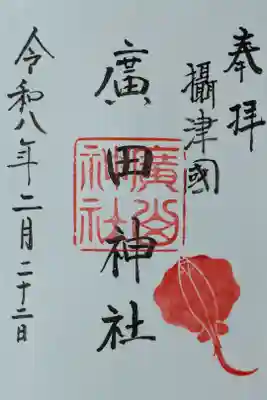 奉拝
攝津國
廣田神社
廣田神社
令和八年二月二十二日